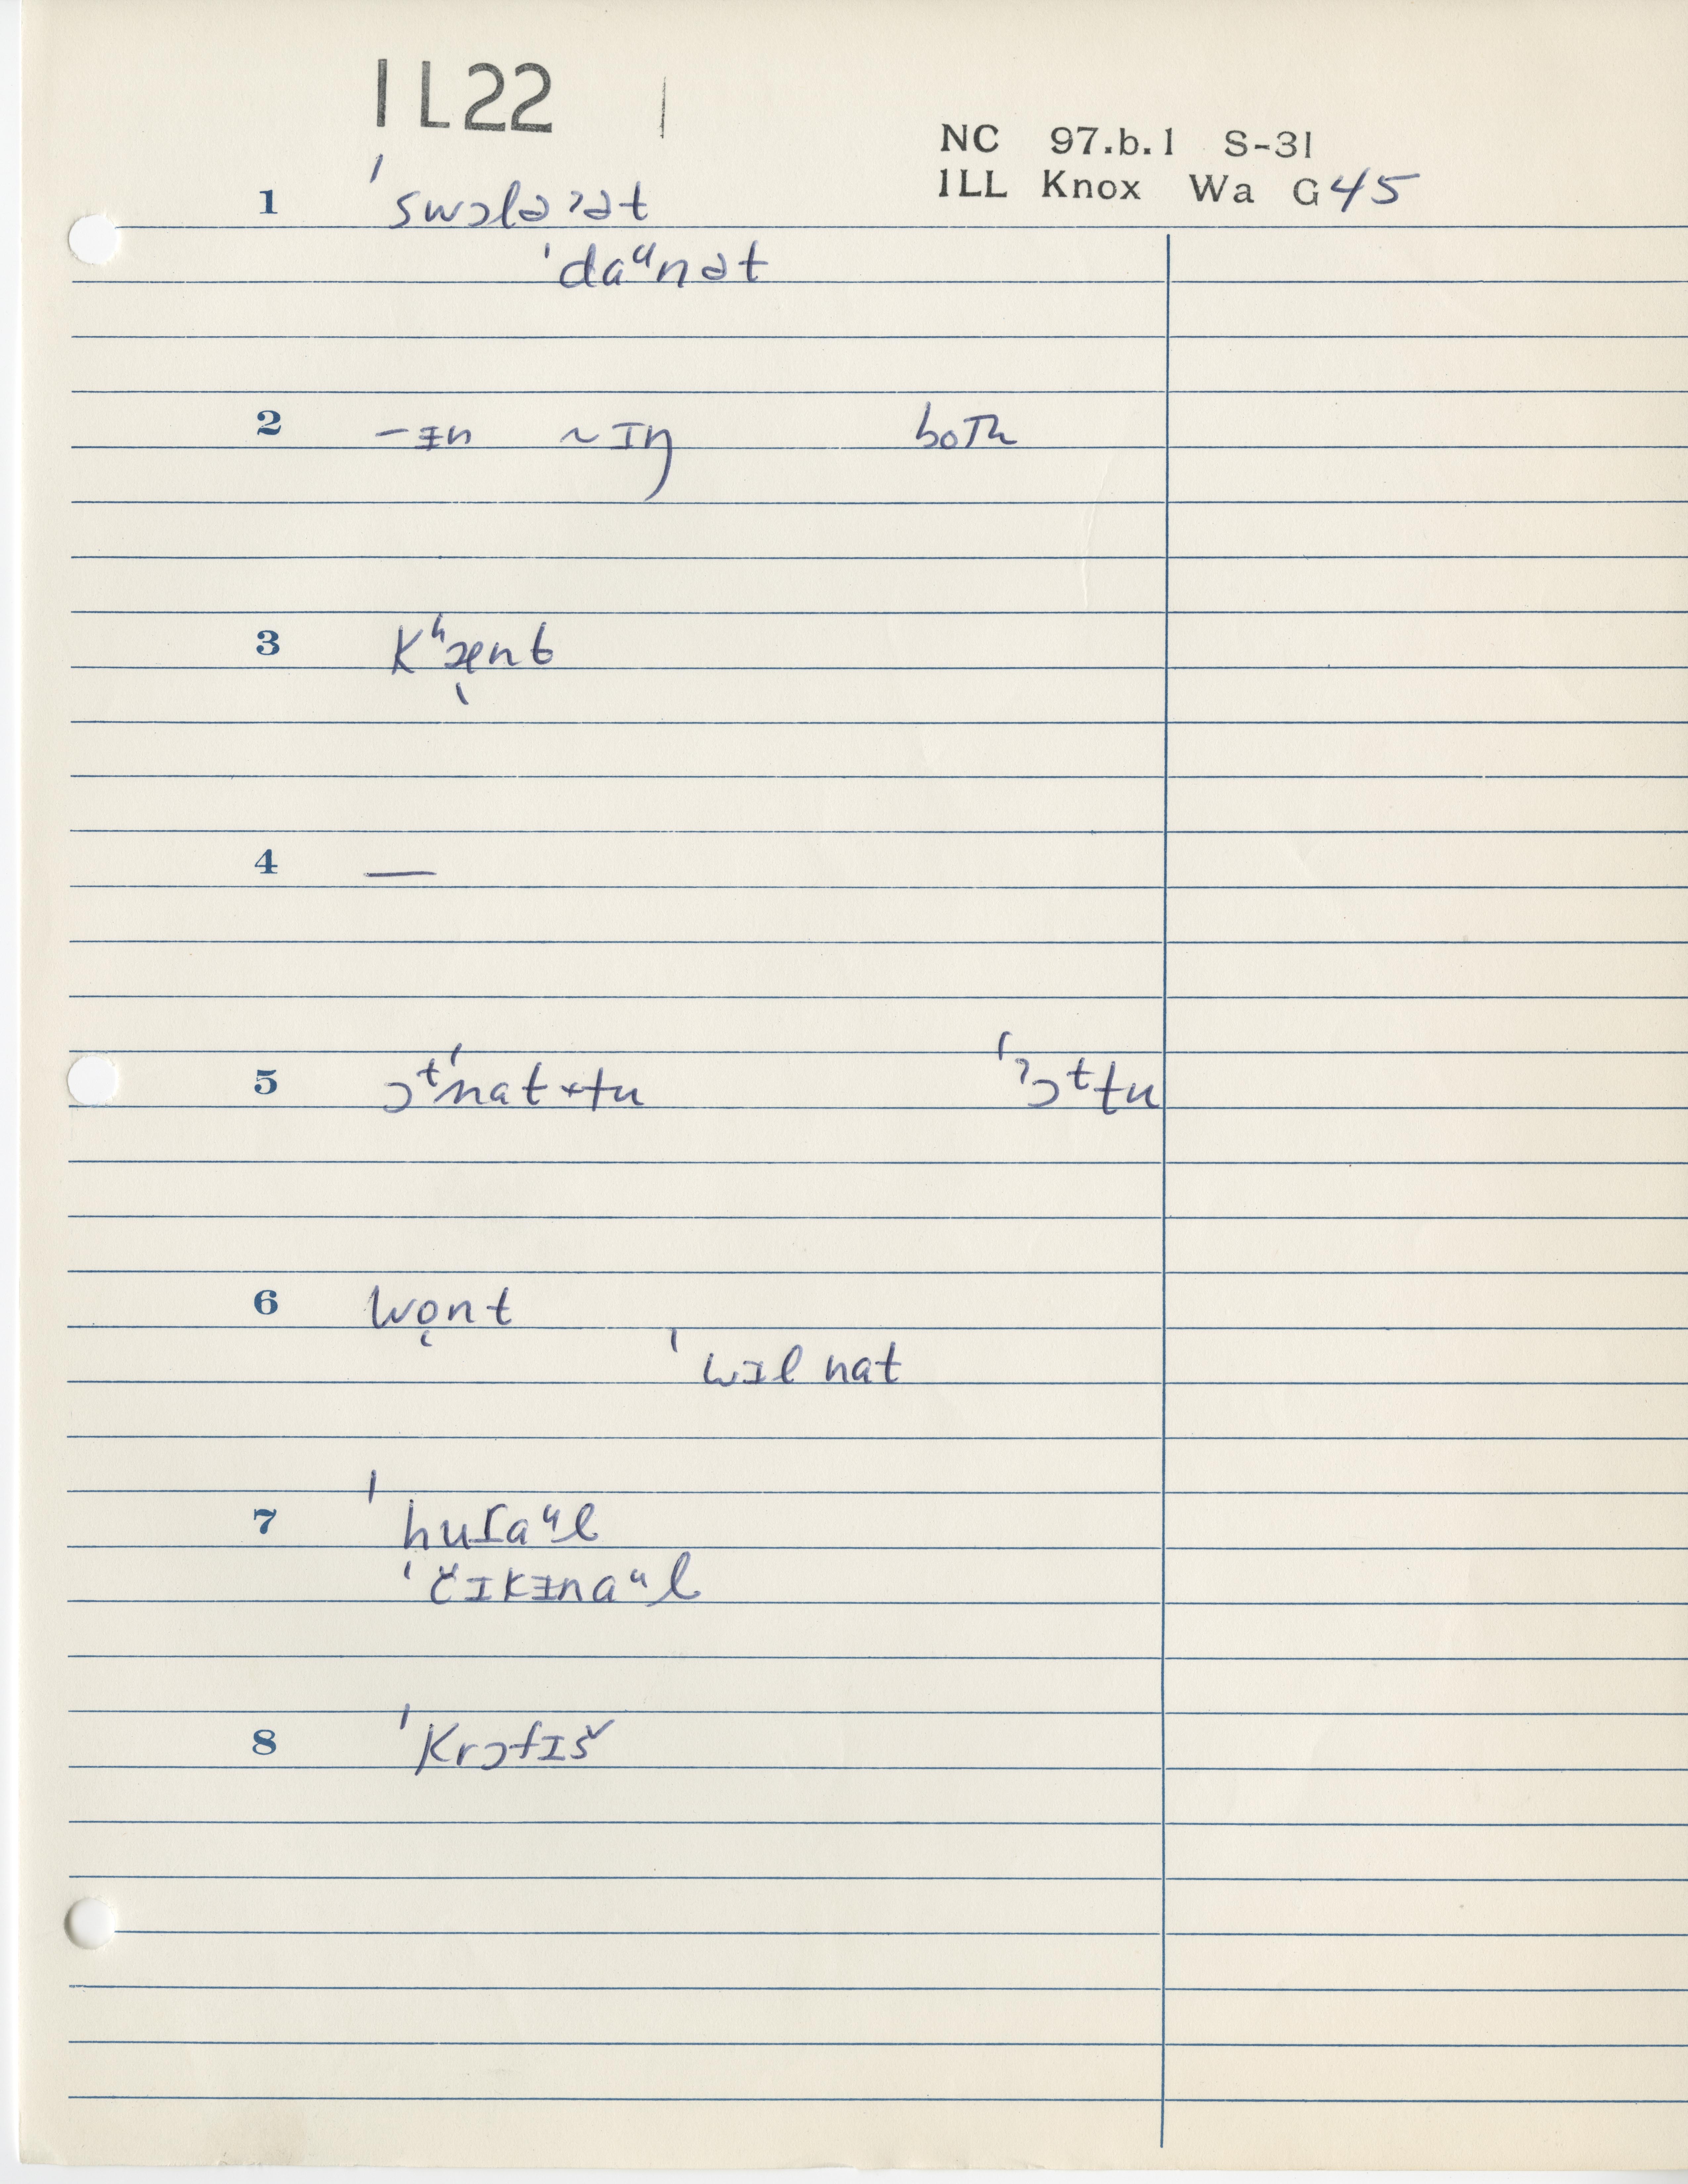 1L22 |
NC 97.b.1 S-31
1LL Knox Wa G45
1 ˈswɔləɾət
ˈdaᵘnət
2 –ɪn ~ɪŋ both
3 kʰæ̨nt
4 —
5 ɔᵗˈnat tu ˈʔɔᵗtu
6 wo̜nt
ˈwɪl nat
7 ˈhuɪaᵘl
ˈčɪkɪnaᵘl
8 ˈkrɔfɪš